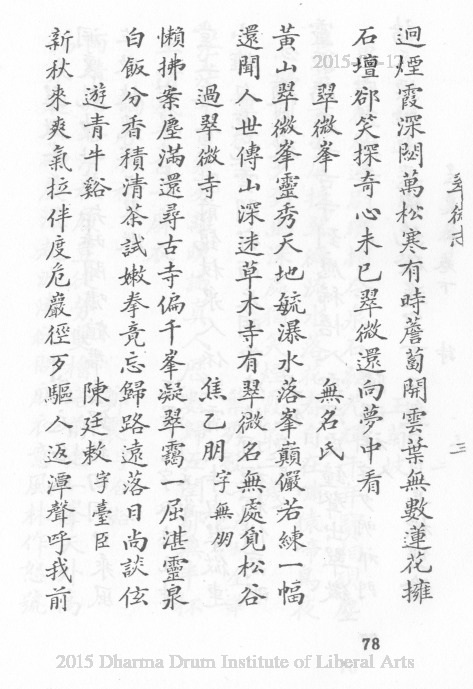 翠微志
三
迥煙霞深閟萬松寒有時薝蔔開雲葉無數蓮花擁
石壇卻笑探奇心未已翠微還向夢中看
翠微峯 無名氏
黃山翠微峯靈秀天地毓瀑水落峯巔儼若練一幅
還聞人世傳山深迷草木寺有翠微名無處覓松谷
過翠微寺 焦乙朋字無朋
懶拂案塵滿還尋古寺偏千峯凝翠靄一屈湛靈泉
白飯分香積清茶試嫩拳竟忘歸路遠落日尚談伭
遊青牛谿 陳廷敕字臺臣
新秋來爽氣拉伴度危巖徑歹驅人返潭聲呼我前
78
2015 Dharma Drum Institute of Liberal Arts